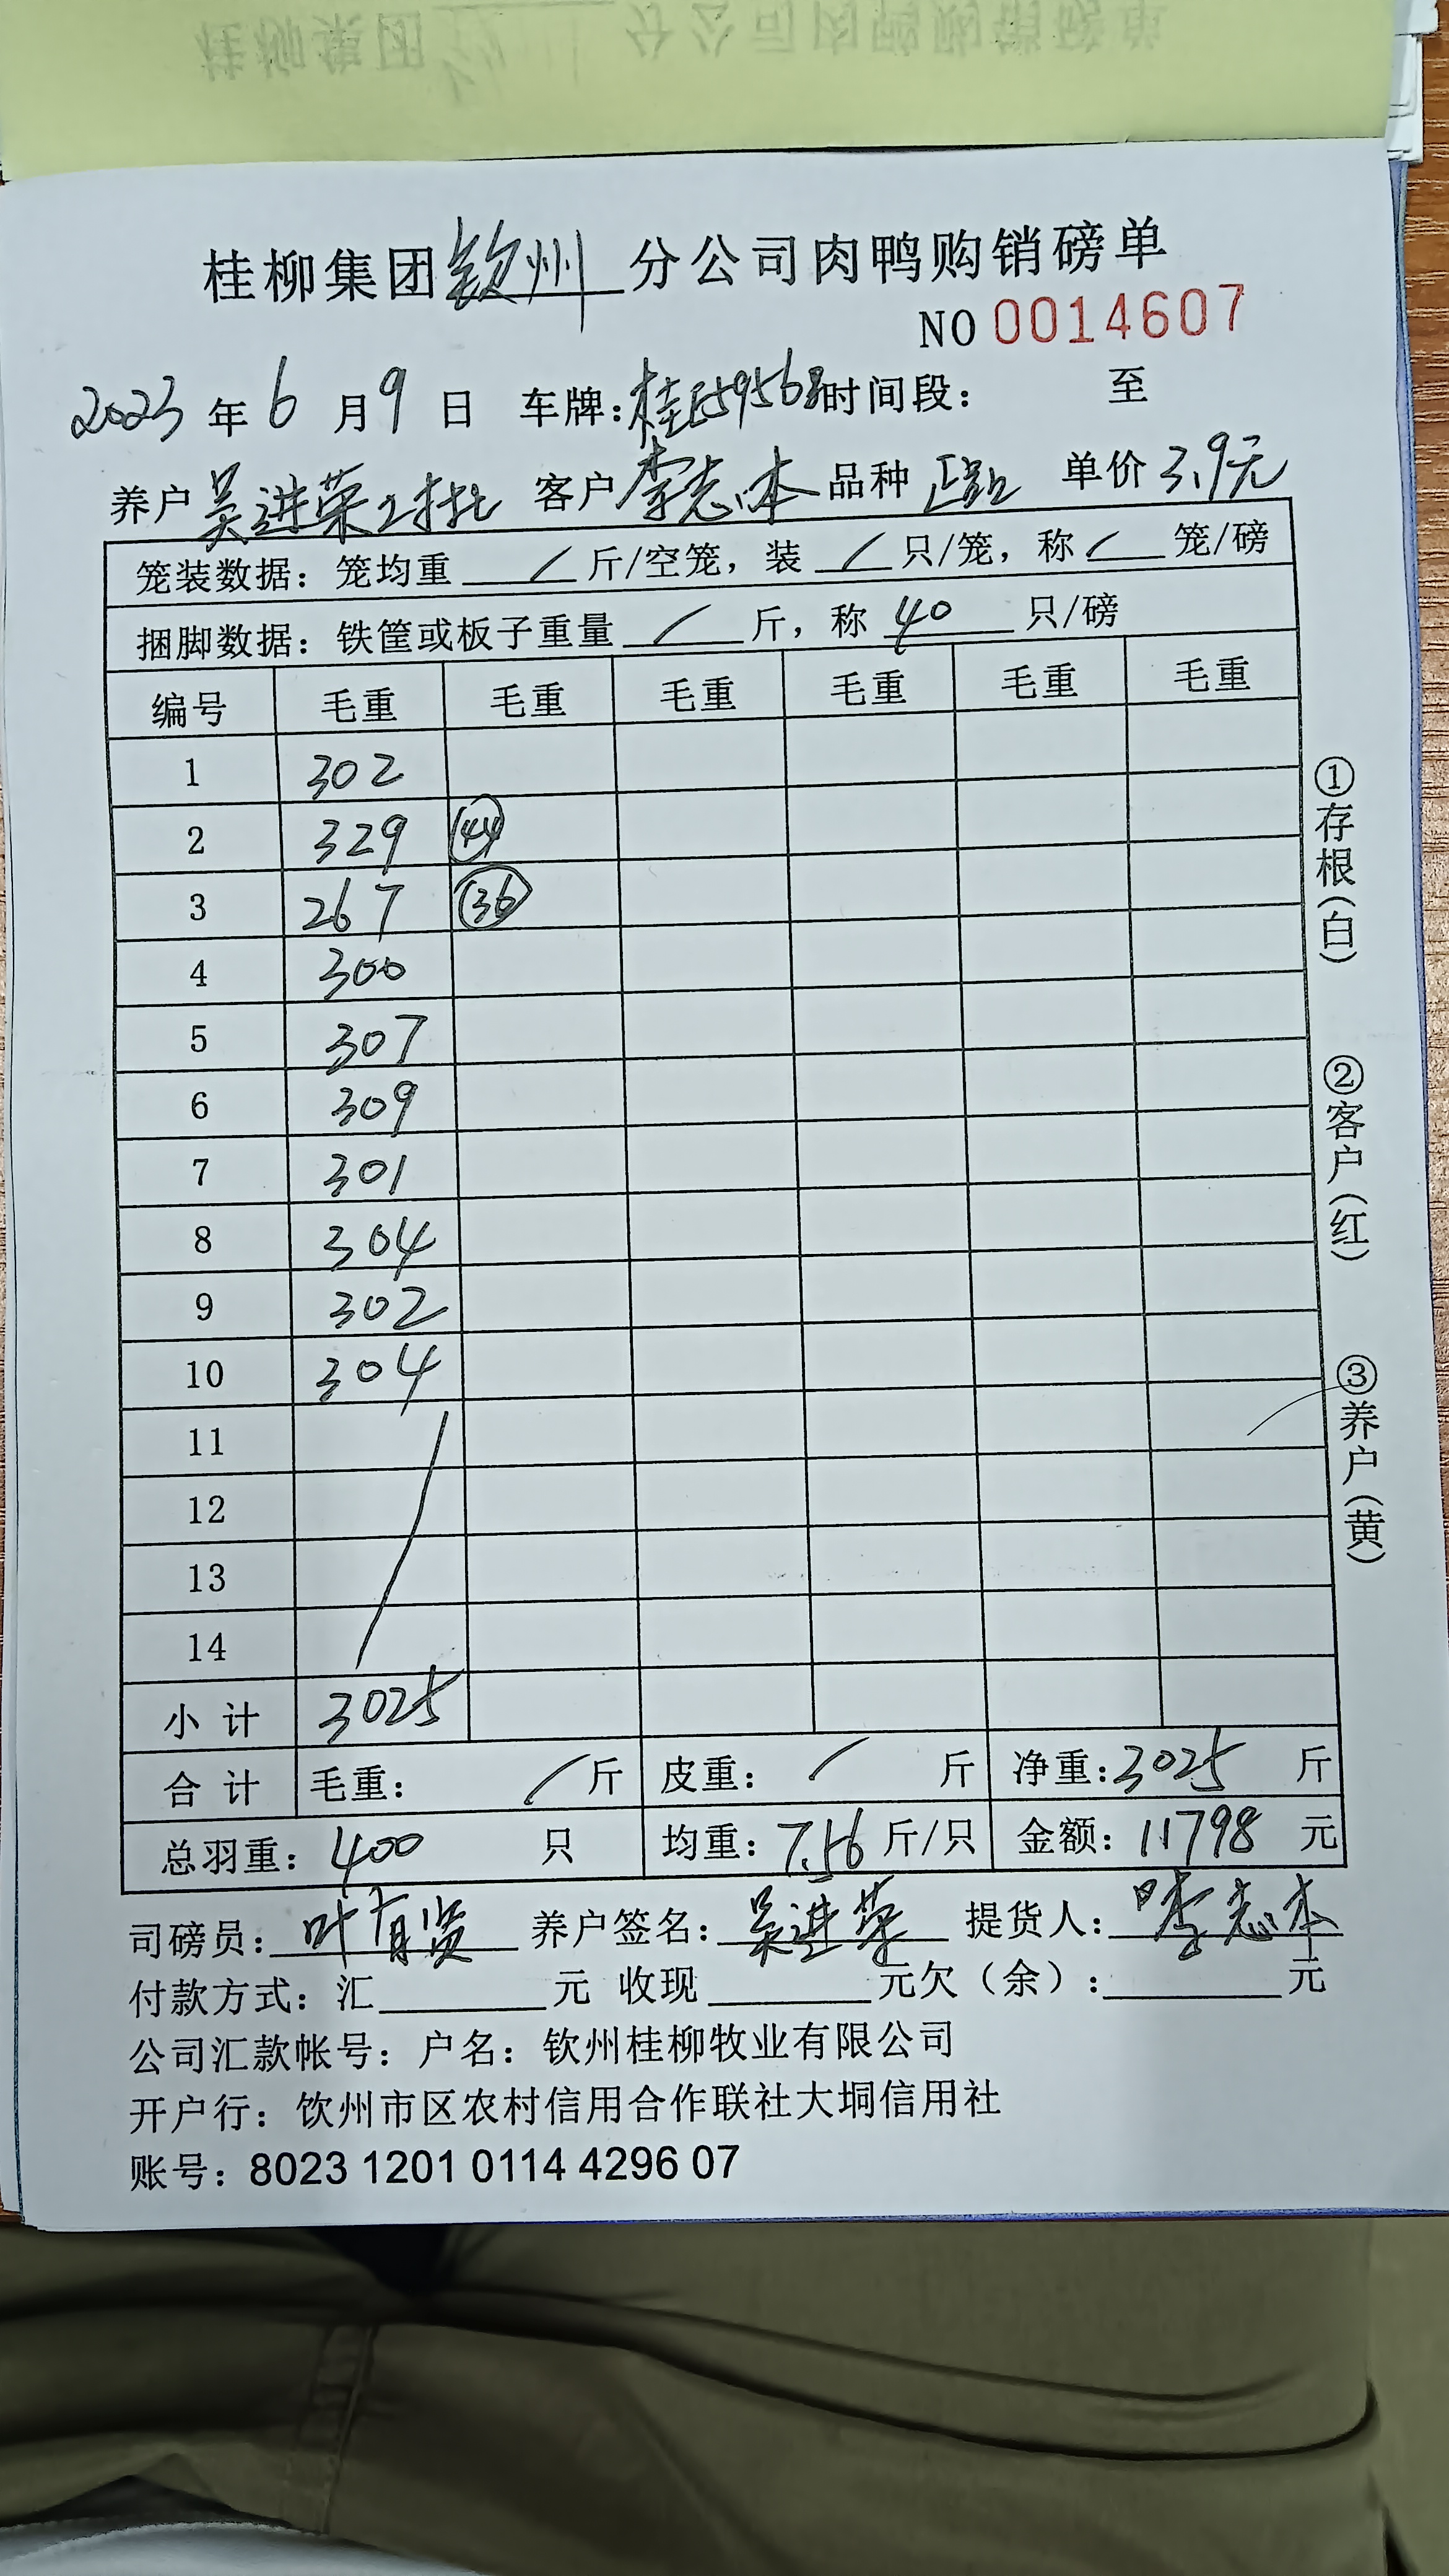 桂柳集团钦州分公司肉鸭购销磅单
NO 0014607
2023年6月9日 车牌: 时间段: 至
养户 吴进荣2批 客户 李志本 品种 单价 3.9元
笼装数据: 笼均重 / 斤/空笼, 装 / 只/笼, 称 / 笼/磅
捆脚数据: 铁筐或板子重量 / 斤, 称 40 只/磅
编号 毛重 毛重 毛重 毛重 毛重 毛重
1 302
2 329 44
3 267 36
4 300
5 307
6 309
7 301
8 304
9 302
10 304
11
12
13
14
小计 3025
合计 毛重: / 斤 皮重: / 斤 净重: 3025 斤
总羽重: 400 只 均重: 7.56 斤/只 金额: 11798 元
司磅员: 叶有贤 养户签名: 吴进荣 提货人: 李志本
付款方式: 汇 元 收现 元欠(余): 元
公司汇款帐号: 户名: 钦州桂柳牧业有限公司
开户行: 钦州市区农村信用合作联社大垌信用社
账号: 8023 1201 0114 4296 07
①存根(白)
②客户(红)
③养户(黄)